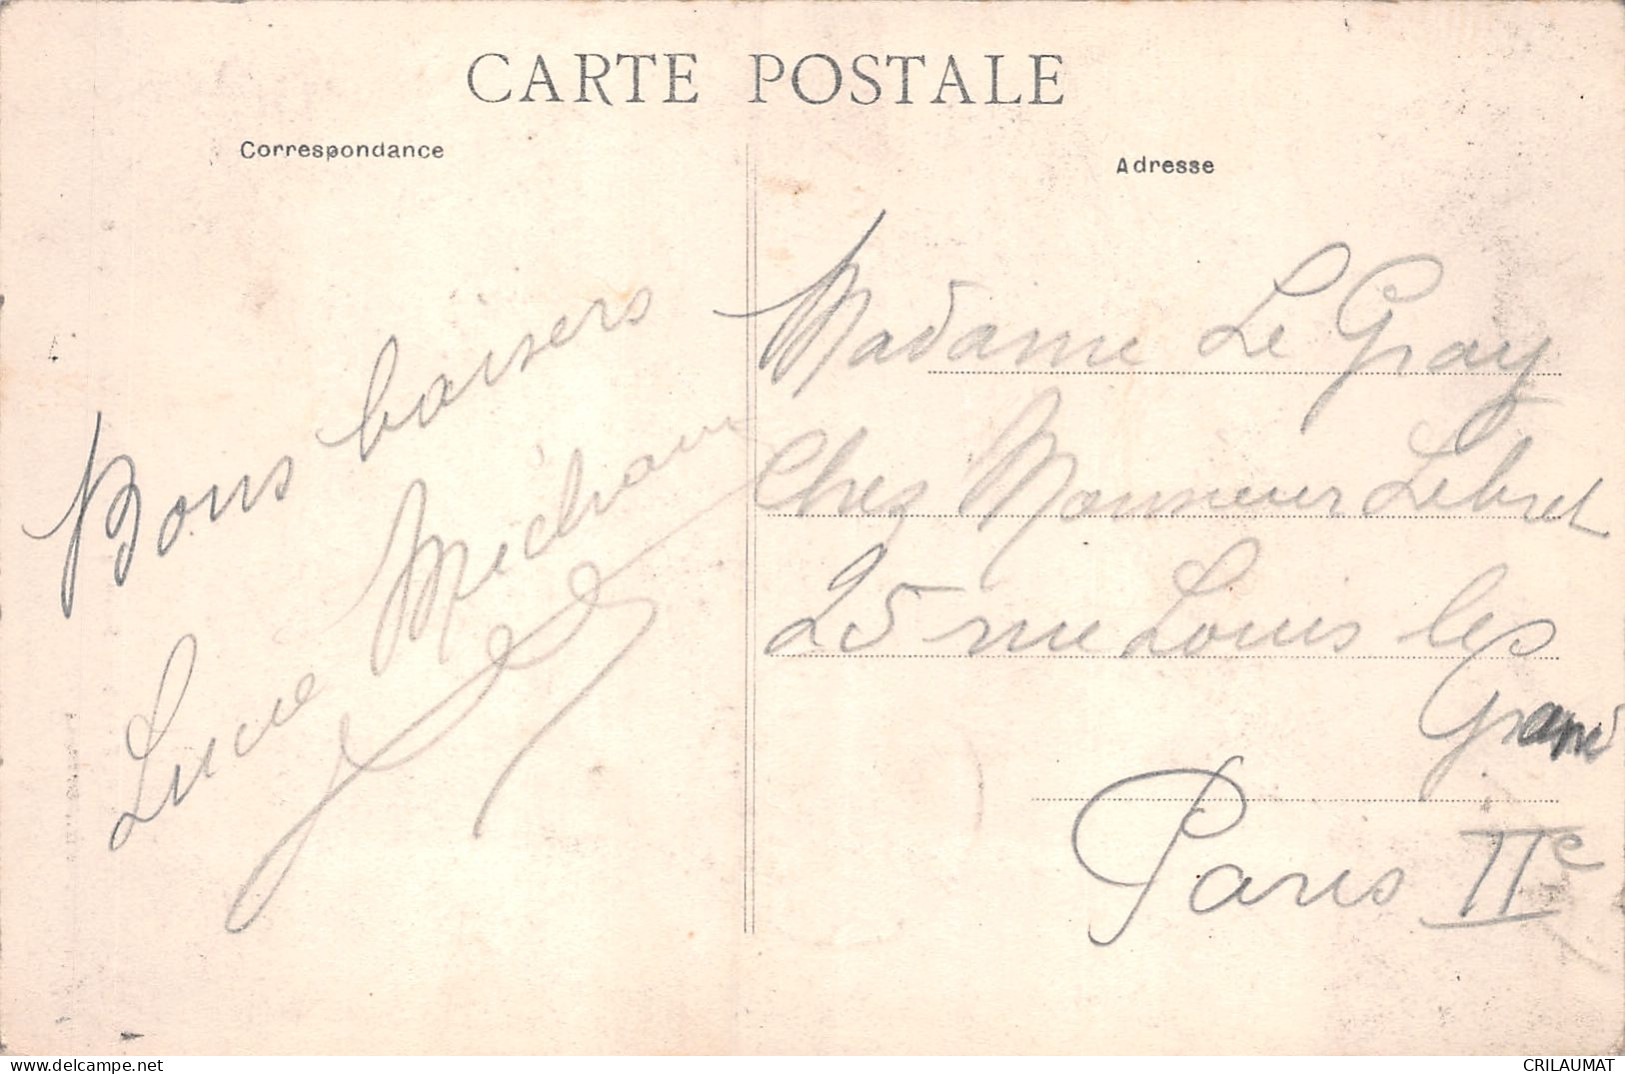 CARTE POSTALE
Correspondance
Bons baisers
Lucie Michaux
Adresse
Madame Le Gray
Chez Monsieur Lebret
25 rue Louis les
Grand
Paris IIe
www.delcampe.net
CRILAUMAT